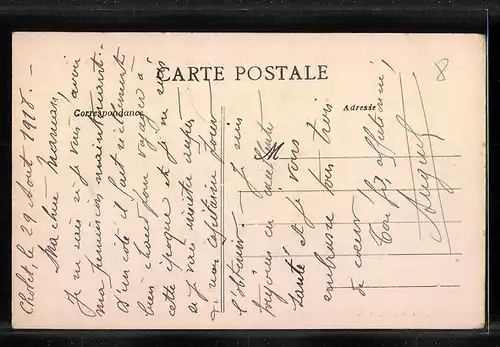 CARTE POSTALE
Correspondance
Adresse
M
Cholet, le 29 Août 1918. –
Ma chère Maman,
Je me vais si je vais avoir
ma permission maintenant.
D'un côté il fait réellement
bien chaud pour voyager à
cette époque et je me
si je vais insister auprès
de mon capitaine pour
l'obtenir. Je suis
toujours en excellente
santé et je vous
embrasse tous trois
de coeur
Ton fils affectionné,